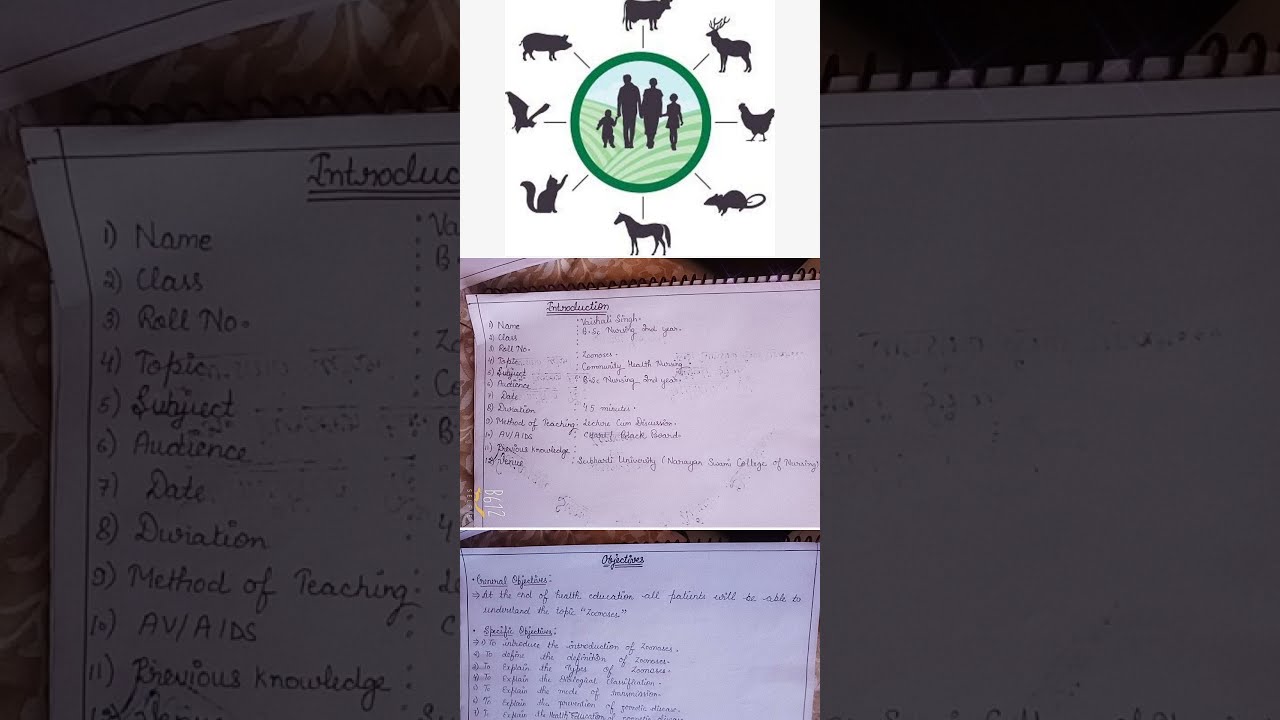 Introduction
1) Name : Vaishali Singh.
2) Class : B.Sc Nursing 2nd year.
3) Roll No.
4) Topic : Zoonoses.
5) Subject : Community Health Nursing
6) Audience : B.Sc Nursing 2nd year.
7) Date
8) Duration : 45 minutes.
9) Method of Teaching : Lecture Cum Discussion.
10) AV/AIDS : Chart/ Black Board.
11) Previous knowledge :
12) Venue : Subharti University (Narayan Swami College of Nursing)
B612
Objectives
• General Objectives:-
→ At the end of health education all patients will be able to
understand the topic "Zoonoses."
• Specific Objectives:-
→ 1) To introduce the introduction of Zoonoses.
2) To define the definition of Zoonoses.
3) To Explain the Types of Zoonoses.
4) To Explain the Etiological Classification.
5) To Explain the mode of transmission.
6) To Explain the prevention of zoonotic disease.
7) To Explain the Health Education of zoonotic disease
Introduc
1) Name : Va
2) Class : B.
3) Roll No.
4) Topic : Zo
5) Subject : Co
6) Audience : B
7) Date
8) Duration : 4
9) Method of Teaching : Le
10) AV/AIDS : C
11) Previous knowledge :
12) Venue : Su